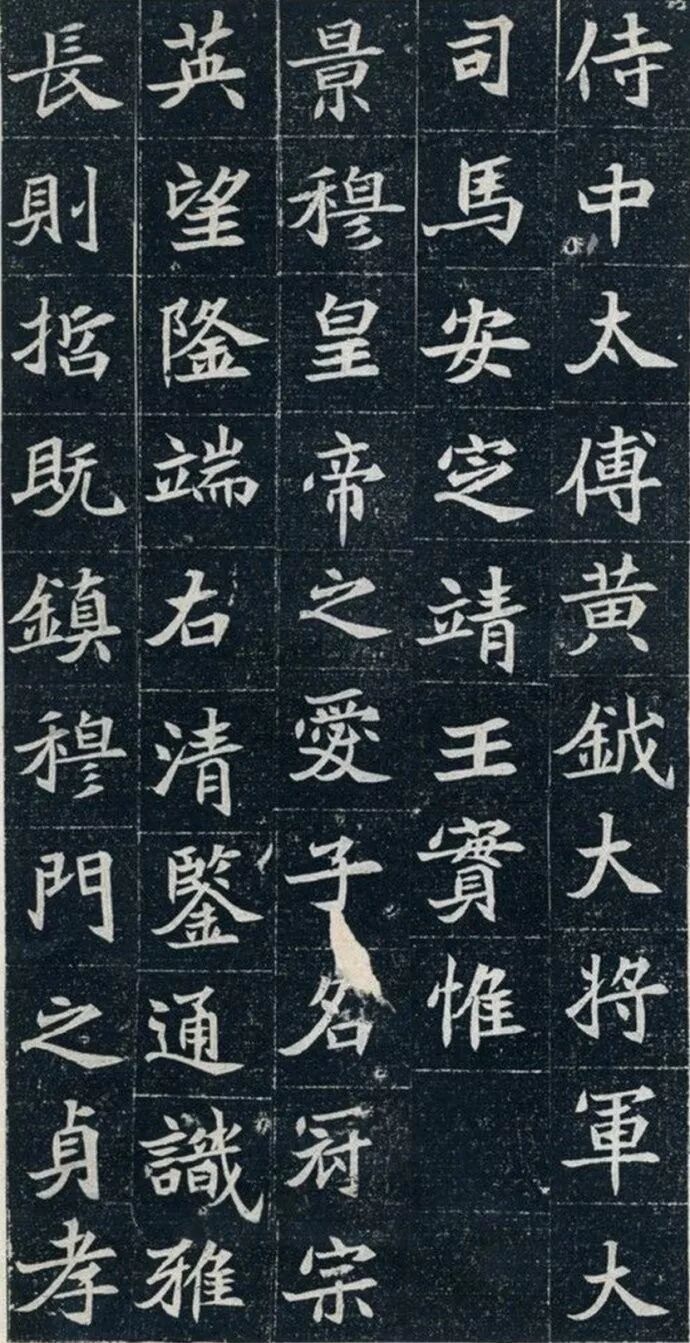 侍中太傅黄鉞大将軍大
司馬安定靖王實惟
景穆皇帝之愛子名冠宗
英望隆端右清鑒通識雅
長則哲既鎮穆門之貞孝